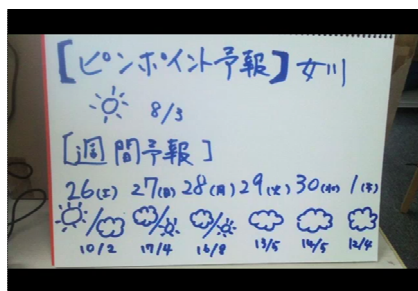 【ピンポイント予報】女川
8/3
[週間予報]
26(土) 27(日) 28(月) 29(火) 30(水) 1(木)
10/2 17/4 16/8 13/5 14/5 12/4